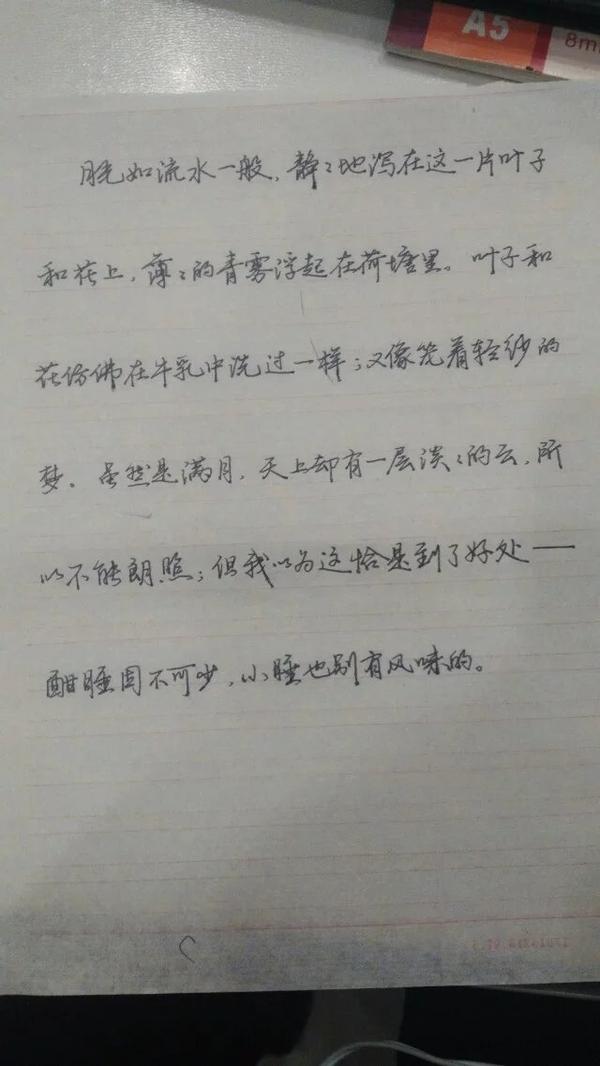 A5
8m
月光如流水一般，静々地泻在这一片叶子
和花上，薄々的青雾浮起在荷塘里。叶子和
花仿佛在牛乳中洗过一样；又像笼着轻纱的
梦。虽然是满月，天上却有一层淡々的云，所
以不能朗照；但我以为这恰是到了好处——
酣睡固不可少，小睡也别有风味的。